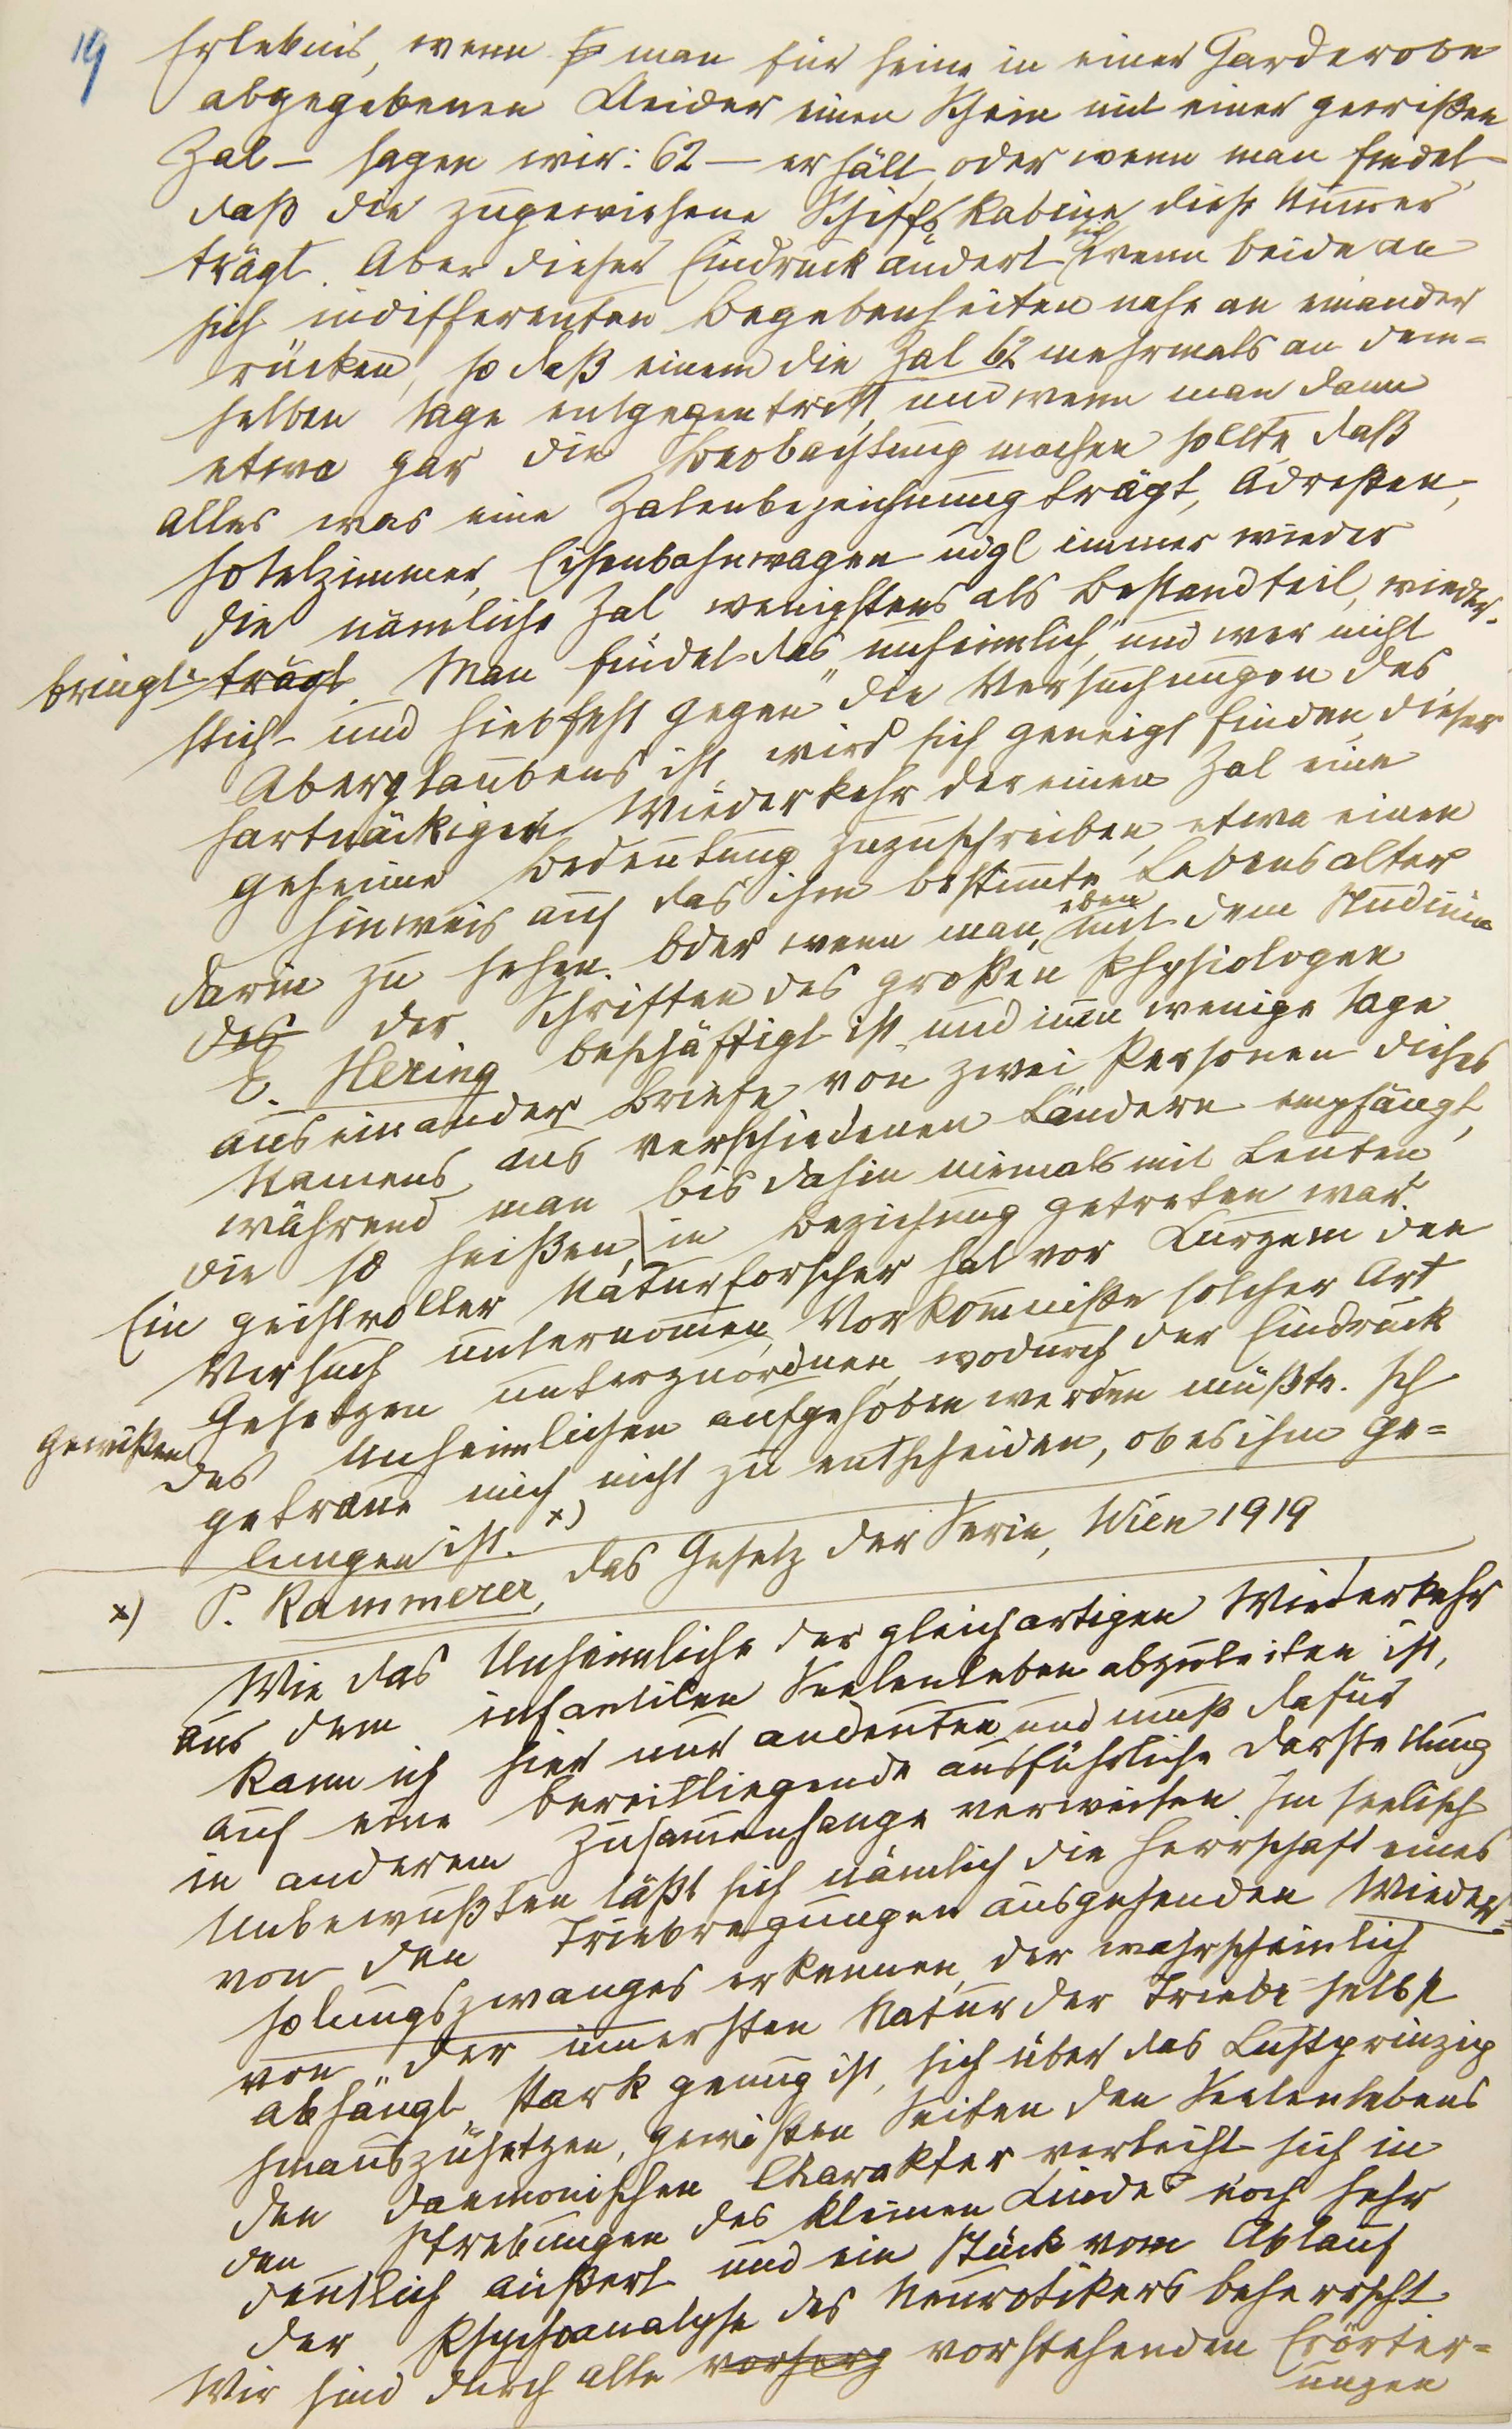 19
Erlebnis, wenn man für seine in einer Garderobe
abgegebenen Kleider einen Schein mit einer gewißen
Zal – sagen wir: 62 – erhält, oder wenn man findet,
daß die zugewiesene Schiffskabine diese Numer
trägt. Aber dieser Eindruck ändert sich, wenn beide an
sich indifferenten Begebenheiten nahe an einander
rücken, so daß einem die Zal 62 mehrmals an dem=
selben Tage entgegentritt, und wenn man dann
etwa gar die Beobachtung machen sollte, daß
alles was eine Zalenbezeichnung trägt, Adreßen,
Hotelzimmer, Eisenbahnwagen udgl immer wieder
die nämliche Zal wenigstens als Bestandteil, wieder-
bringt. trägt. Man findet das „unheimlich“ und wer nicht
stich- und hiebfest gegen die Versuchungen des
Aberglaubens ist, wird sich geneigt finden, dieser
hartnäckigen Wiederkehr der einen Zal eine
geheime Bedeutung zuzuschreiben, etwa einen
Hinweis auf das ihm bestimmte Lebensalter
darin zu sehen. Oder wenn man eben mit dem Studium
des der Schriften des großen Physiologen
E. Hering beschäftigt ist und nun wenige Tage
auseinander Briefe von zwei Personen dieses
Namens aus verschiedenen Ländern empfängt,
während man bis dahin niemals mit Leuten,
die so heißen, in Beziehung getreten war.
Ein geistvoller Naturforscher hat vor Kurzem den
Versuch unternomen, Vorkomniße solcher Art
gewißen Gesetzen unterzuordnen, wodurch der Eindruck
des Unheimlichen aufgehoben werden müßte. Ich
getraue mich nicht zu entscheiden, ob es ihm ge=
lungen ist. x)
x) P. Kammerer, das Gesetz der Serie, Wien 1919
Wie das Unheimliche der gleichartigen Wiederkehr
aus dem infantilen Seelenleben abzuleiten ist,
kann ich hier nur andeuten und muß dafür
auf eine bereitliegende ausführliche Darstellung
in anderem Zusamenhange verweisen. Im seelisch
Unbewußten läßt sich nämlich die Herrschaft eines
von den Triebregungen ausgehenden Wieder=
holungszwanges erkennen, der wahrscheinlich
von der innersten Natur der Triebe selbst
abhängt, stark genug ist, sich über das Lustprinzip
hinauszusetzen, gewißen Seiten des Seelenlebens
den daemonischen Charakter verleiht sich in
den Strebungen des kleinen Kindes noch sehr
deutlich äußert und ein Stück vom Ablauf
der Psychoanalyse des Neurotikers beherrscht.
Wir sind durch alle vorherg vorstehenden Erörter=
ungen